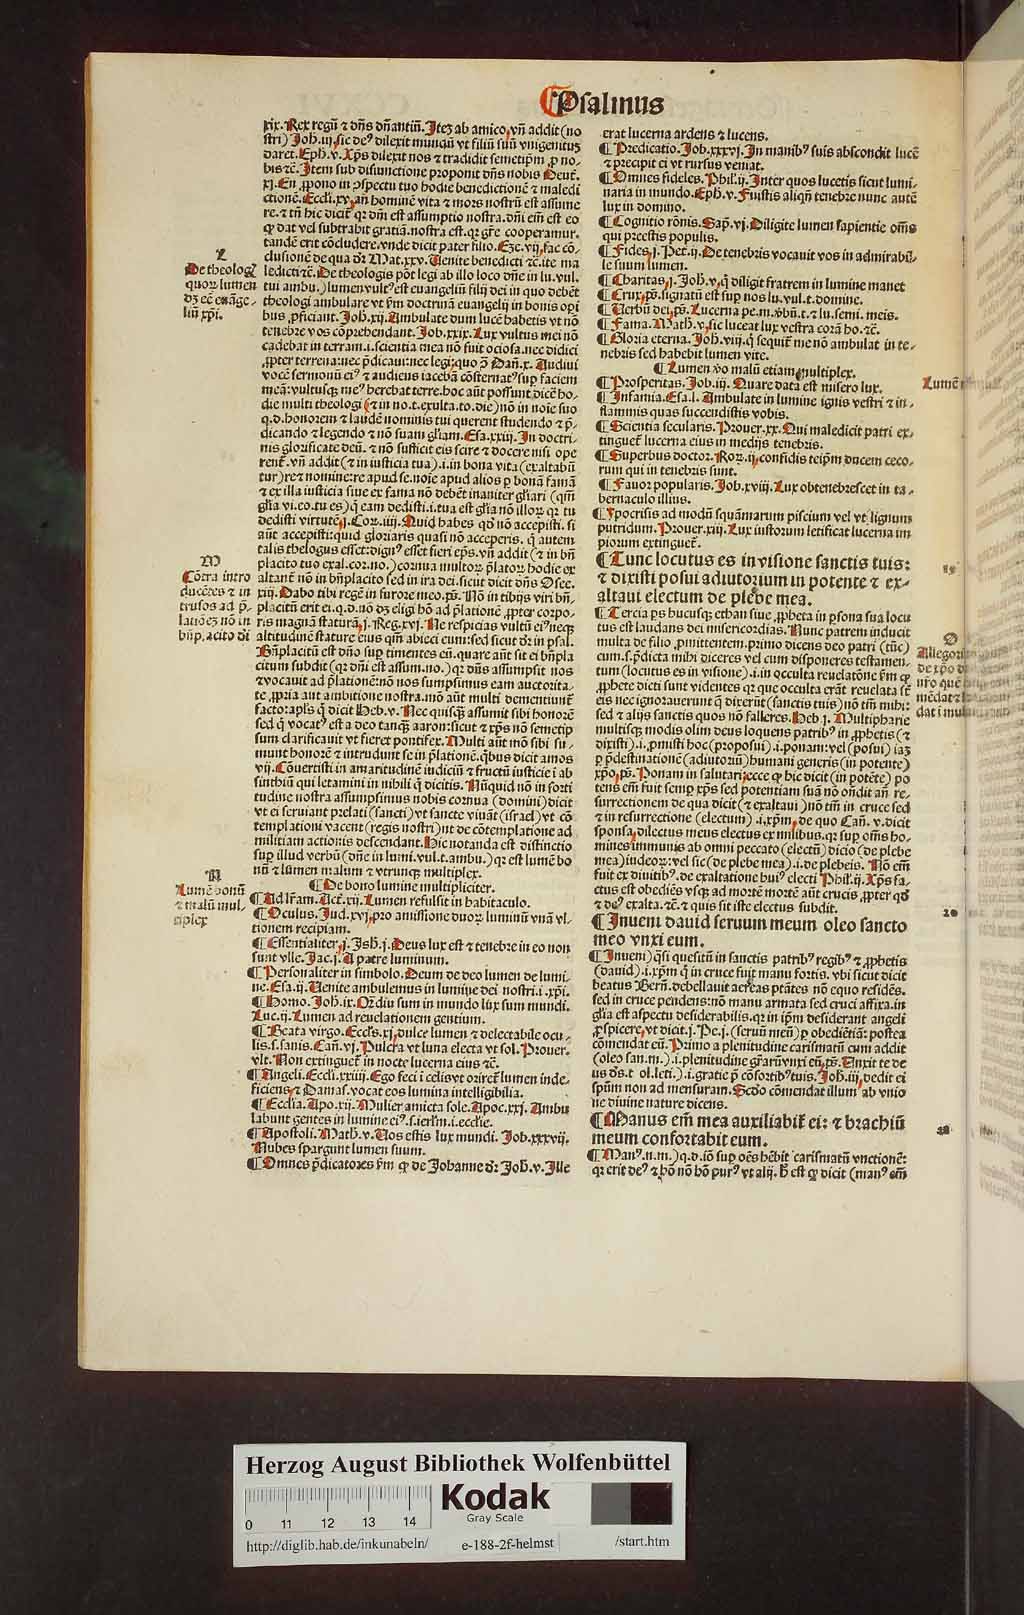 Psalmus
xix. Rex regũ ⁊ dñs dñantiũ. Itez ab amico, vñ addit (no
stri) Joh. iij, sic deꝰ dilexit mundũ vt filiũ suũ vnigenitũ
daret. Eph. v. Xp̃s dilexit nos ⁊ tradidit semetip̃m ꝓ no-
bis ⁊c̃. Item sub disiunctione proponit dñs nobis Deut̃.
xj. En ꝓpono in ↄspectu tuo hodie benedictionẽ ⁊ maledi
ctionẽ. Eccl̃i. xv, añ hominẽ vita ⁊ mors nostrũ est assume
re. ⁊ tñ hic dicit̃ qꝛ dñi est assumptio nostra. dñi eim̃ est eo
ꝙ dat vel subtrahit gratiã. nostra est. qꝛ gr̃e cooperamur.
tandẽ erit cõcludere. vnde dicit pater filio. Eze. vij, fac cõ-
clusionẽ de qua dr̃ Mat. xxv. Uenite benedicti ⁊c̃. ite ma
ledicti ⁊c̃. De theologis põt legi ab illo loco dñe in lu. vul.
tui ambu.) lumen vultꝰ est euangeliũ filij dei in quo debẽt
theologi ambulare vt ẜm doctrinã euangelij in bonis opi
bus ꝓficiant. Joh. xij. Ambulate dum lucẽ habetis vt nõ
tenebre vos cõprehendant. Job. xxix. Lux vultus mei nõ
cadebat in terram. i. scientia mea nõ fuit ociosa. nec didici
ꝓpter terrena: nec p̃dicaui: nec legi; quo ꝓ Dañ. x. Audiui
vocẽ sermonũ eiꝰ ⁊ audiens iacebã cõsternatꝰ sup faciem
meã: vultusqꝫ meꝰ herebat terre. hoc aũt possunt dicẽ ho-
die multi theologi (⁊ in no. t. exulta. to. die) nõ in noĩe suo
q. d. honorem ⁊ laudẽ nominis tui querent studendo ⁊ p̃-
dicando ⁊ legendo ⁊ nõ suam gl̃iam. Esa. xxiij. In doctri-
nis glorificate deũ. ⁊ nõ sufficit eis scire ⁊ docere nisi ope
rent̃. vñ addit (⁊ in iusticia tua). i. in bona vita (exaltabũ
tur) re ⁊ nomine: re apud se. noĩe apud alios ꝑ bonã famã
⁊ ex illa iusticia siue ex fama nõ debẽt inaniter gl̃iari (qm̃
gl̃ia vi. eo. tu es) q̃ eam dedisti. i. tua est gl̃ia nõ illoꝝ qꝛ tu
dedisti virtutẽ. j. Coꝝ. iiij. Quid habes qd̃ nõ accepisti. si
aũt accepisti: quid gloriaris quasi nõ acceperis. q̃ autem
talis thelogus esset: dignꝰ esset fieri ep̃s. vñ addit (⁊ in bñ
placito tuo exal. coꝛ. no.) coꝛnua multoꝝ p̃latoꝝ hodie ex
altant̃ nõ in bñplacito sed in ira dei. sicut dicit dñs Osee.
xiij. Dabo tibi regẽ in furore meo. ps̃. Nõ in tibijs viri bñ-
placitũ erit ei. q. d. nõ dꝫ eligi hõ ad p̃lationẽ ꝓpter coꝛpo-
ris magnã staturã. j. Reg. xvj. Ne respicias vultũ eiꝰ neqꝫ
altitudinẽ stature eius qm̃ abieci eum: sed sicut dr̃ in psal.
Bñplacitũ est dño sup timentes eũ. quare aũt sit ei bñpla
citum subdit (qꝛ dñi est assum. no.) qꝛ dñs assumpsit nos
⁊ vocauit ad p̃lationẽ: nõ nos sumpsimus eam auctorita-
te ꝓpria aut ambitione nostra. nõ aũt multi dementiunt̃
facto: apl̃s q̃ dicit Heb. v. Nec quisqꝫ assumit sibi honorẽ
sed q̃ vocatꝰ est a deo tanqꝫ aaron: sicut ⁊ xp̃s nõ semetip
sum clarificauit vt fieret pontifex. Multi aũt mõ sibi su-
munt honorẽ ⁊ intrudunt se in p̃lationẽ. q̃bus dicit amos
vij. Cõuertisti in amaritudinẽ iudiciũ ⁊ fructũ iusticie i ab
sinthiũ qui letamini in nihili q̃ dicitis. Nũquid nõ in foꝛti
tudine nostra assumpsimus nobis coꝛnua (domini) dicit
vt ei seruiant prelati (sancti) vt sancte viuãt (israel) vt cõ
templationi vacent (regis nostri) vt de cõtemplatione ad
militiam actionis descendant. Hic notanda est distinctio
sup illud verbũ (dñe in lumi. vul. t. ambu.) qꝛ est lumẽ bo
nũ ⁊ lumen malum ⁊ vtrunqꝫ multiplex.
¶ De bono lumine multipliciter.
¶ Ad lr̃am. Act̃. xij. Lumen refulsit in habitaculo.
¶ Oculus. Jud. xvj, pro amissione duoꝝ luminũ vnã vl-
tionem recipiam.
¶ Essentialiter. j. Joh̃. j. Deus lux est ⁊ tenebre in eo non
sunt vlle. Jac. j. A patre luminum.
¶ Personaliter in simbolo. Deum de deo lumen de lumi-
ne. Esa. ij. Uenite ambulemus in lumine dei nostri. i. xp̃i.
¶ Homo. Joh̃. ix. Qr̃diu sum in mundo lux sum mundi.
Luc. ij. Lumen ad reuelationem gentium.
¶ Beata virgo. Eccl̃s. xj, dulce lumen ⁊ delectabile ocu-
lis. s. sanis. Cañ. vj. Pulcra vt luna electa vt sol. Prouer.
vlt̃. Non extinguet̃ in nocte lucerna eius ⁊c̃.
¶ Angeli. Eccl̃i. xxiiij. Ego feci i celis vt oriret̃ lumen inde-
ficiens, ⁊ Damas. vocat eos lumina intelligibilia.
¶ Eccl̃ia. Apo. xij. Mulier amicta sole. Apoc. xxj. Ambu
labunt gentes in lumine eiꝰ. s. ierl̃m. i. eccl̃ie.
¶ Apostoli. Math̃. v. Uos estis lux mundi. Job. xxxvij.
Nubes spargunt lumen suum.
¶ Omnes p̃dicatores ẜm ꝙ de Johanne dr̃: Joh̃. v. Ille
L
De theologꝭ
quoꝝ lumen
dꝫ eẽ euãge-
liũ xp̃i.
M
Cõtra intro
ducẽtes ⁊ in
trusos ad p̃-
lationẽ nõ in
bñplacito di
N
Lumẽ bonũ
⁊ malũ mul-
tiplex
erat lucerna ardens ⁊ lucens.
¶ Predicatio. Job. xxxvj. In manibꝰ suis abscondit lucẽ
⁊ precipit ei vt rursus veniat.
¶ Omnes fideles. Phil̃. ij. Inter quos lucetis sicut lumi-
naria in mundo. Eph. v. Fuistis aliqñ tenebre nunc autẽ
lux in domino.
¶ Cognitio rõnis. Sap̃. vj. Diligite lumen sapientie om̃s
qui preestis populis.
¶ Fides. j. Pet̃. ij. De tenebris vocauit vos in admirabi-
le suum lumen.
¶ Charitas. j. Joh̃. v, q̃ diligit fratrem in lumine manet
¶ Crux, ps̃. signatũ est sup nos lu. vul. t. domine.
¶ Uerbũ dei, ps̃. Lucerna pe. m. v̾bũ. t. ⁊ lu. semi. meis.
¶ Fama. Math̃. v, sic luceat lux vestra corã ho. ⁊c̃.
¶ Gloria eterna. Joh̃. viij. q̃ sequit̃ me nõ ambulat in te-
nebris sed habebit lumen vite.
¶ Lumen v̾o malũ etiam multiplex.
¶ Prosperitas. Job. iij. Quare data est misero lux.
¶ Infamia. Esa. l. Ambulate in lumine ignis vestri ⁊ in-
flammis quas succendistis vobis.
¶ Scientia secularis. Prouer. xx. Qui maledicit patri ex-
tinguet̃ lucerna eius in medijs tenebris.
¶ Superbus doctor. Roꝝ. ij, confidis teip̃m ducem ceco-
rum qui in tenebris sunt.
¶ Fauor popularis. Job. xviij. Lux obtenebrescet in ta-
bernaculo illius.
¶ Ypocrisis ad modũ squãmarum piscium vel vt lignum
putridum. Prouer. xiij. Lux iustorum letificat lucerna im
piorum extinguet̃.
¶ Tunc locutus es in visione sanctis tuis:
⁊ dixisti posui adiutorium in potente ⁊ ex-
altaui electum de plebe mea.
¶ Tercia ps hucusqꝫ ethan siue ꝓpheta in ꝑsona sua locu
tus est laudans dei misericordias. Nunc patrem inducit
multa de filio ꝓmittentem. primo dicens deo patri (tũc)
cum. s. p̃dicta mihi diceres vel cum disponeres testamen-
tum (locutus es in visione). i. in occulta reuelatõne ẜm ꝙ
ꝓphete dicti sunt videntes qꝛ que occulta erãt reuelata st̃
eis nec ignorauerunt q̃ dixerũt (sanctis tuis) nõ tm̃ mihi:
sed ⁊ alijs sanctis quos nõ falleres. Heb. j. Multipharie
multisqꝫ modis olim deus loquens patribꝰ in ꝓphetis (⁊
dixisti). i. ꝓmisti hoc (proposui). i. ponam: vel (posui) iaꝫ
ꝑ p̃destinationẽ (adiutoriũ) humani generis (in potente)
xp̃o, ps̃. Ponam in salutari; ecce ꝙ hic dicit (in potẽte) po
tens em̃ fuit semꝑ xp̃s sed potentiam suã nõ oñdit añ re-
surrectionem de qua dicit (⁊ exaltaui) nõ tm̃ in cruce sed
⁊ in resurrectione (electum). i. xp̃m, de quo Cañ. v. dicit
sponsa, dilectus meus electus ex milibus. qꝛ sup om̃s ho-
mines immunis ab omni peccato (electũ) dicio (de plebe
mea) iudeoꝝ: vel sic (de plebe mea). i. de plebeis. Nõ em̃
fuit ex diuitibꝰ. de exaltatione huiꝰ electi Phil̃. ij. Xp̃s fa-
ctus est obediẽs vsqꝫ ad mortẽ mortẽ aũt crucis, ꝓpter qd̃
⁊ deꝰ exalta. ⁊c̃. ⁊ quis sit iste electus subdit.
¶ Inueni dauid seruum meum oleo sancto
meo vnxi eum.
¶ Inueni) q̃si quesitũ in sanctis patribꝰ regibꝰ ⁊ ꝓphetis
(dauid). i. xp̃m q̃ in cruce fuit manu fortis. vbi sicut dicit
beatus Berñ. debellauit aereas ptãtes nõ equo residẽs.
sed in cruce pendens: nõ manu armata sed cruci affixa. in
gl̃ia est aspectu desiderabilis. qꝛ in ip̃m desiderant angeli
ꝓspicere, vt dicit. j. Pe. j. (seruũ meũ) ꝑ obediẽtiã: postea
cõmendat eũ. Primo a plenitudine carismatũ cum addit
(oleo san. m.). i. plenitudine gr̃arũ vnxi eũ, ps̃. Unxit te de
us ds̃. t̃ ol. leti.). i. gratie p̃ cõsortibꝰ tuis. Joh̃. iij, dedit ei
spũm non ad mensuram. Scðo cõmendat illum ab vnio
ne diuine nature dicens.
¶ Manus em̃ mea auxiliabit̃ ei: ⁊ brachiũ
meum confortabit eum.
¶ Manꝰ. n. m.) q. d. iõ sup oẽs hẽbit carismatũ vnctionẽ:
qꝛ erit deꝰ ⁊ hõ nõ hõ purꝰ vt alij. h̾ est ꝙ dicit (manꝰ em̃
19
O
20
21
Herzog August Bibliothek Wolfenbüttel
0 11 12 13 14
Kodak
Gray Scale
http://diglib.hab.de/inkunabeln/ e-188-2f-helmst /start.htm